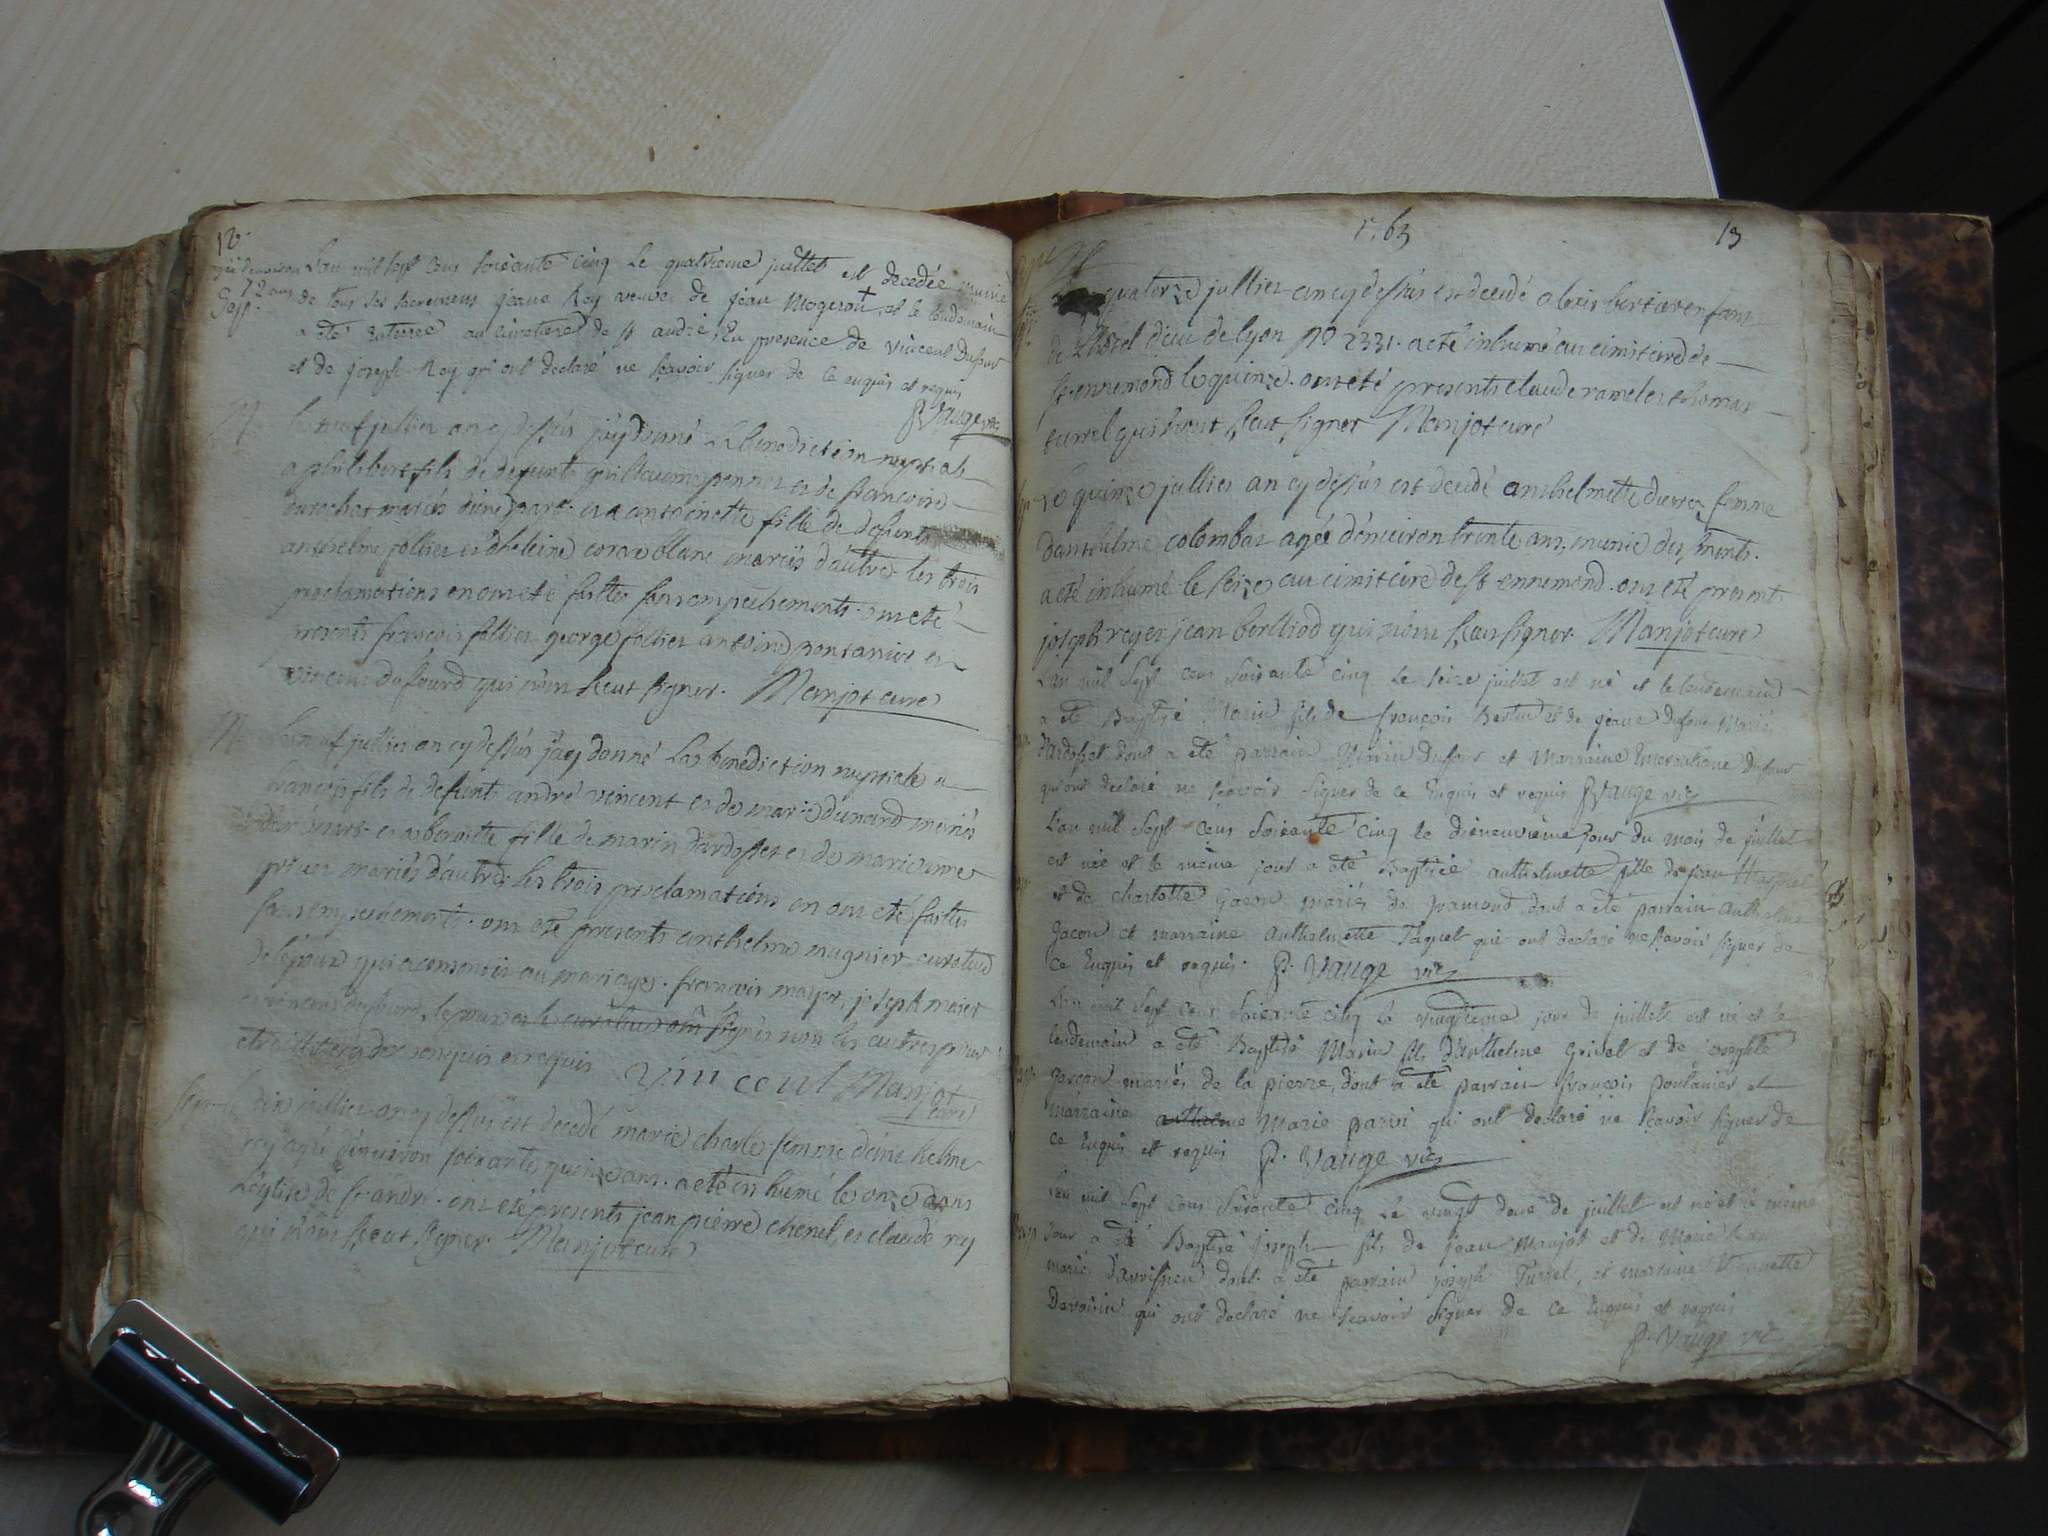 12
L'an mil sept cens soixante cinq le quatrieme juillet est decedée munie
72 ans de tous ses sacremens jeane Rey veuve de jean Mogeron et le lendemain
a eté enterrée au cimetiere de st andré, En presence de vincent Dufour
et de joseph Rey qui ont declaré ne scavoir signer de ce enquis et requis
P. Vauge vic
M le neuf jullier an cy dessus j'ay donné la benediction nuptiale
a philibert fils de defunt guillaume pernet et de francoise
mariés d'une part et a antoinette fille de defunt
anthelme follier et d'heleine blanc mariés d'autre les trois
proclamations en ont eté faittes sans empechements. ont eté
presents francois follier george follier antoine pontanier et
vincent dufourd qui n'ont sceut signer. Manjot curé
M le neuf jullier an cy dessus j'ay donné la benediction nuptiale a
francois fils de defunt andré vincent et de marie dunard mariés
d'une part et a benoitte fille de marin dardosset et de marie anne
mariés d'autre les trois proclamations en ont eté faittes
sans empechements. ont eté presents anthelme mugnier curateur
de l'epoux qui a consentit au mariage. francois masson, joseph
et vincent dufourd, l'epoux et le signés non les autres pour
etre illiterés de ce enquis et requis vincent Manjot
curé
sepu. le dix jullier an cy dessus est decedé marie charle femme d'anthelme
rey agée d'environ soixante quinze ans. a eté inhumé le onze dans
l'eglise de st andré. ont eté presents jean pierre chenel, et claude rey
qui n'ont sceut signer. Manjot curé
1765 13
quatorze jullier an cy dessus est decedé alexis enfant
de L'hotel dieu de lyon N° 2331. a eté inhumé au cimitiere de
st ennemond le quinze. ont eté presents claude ramel et thomas
turrel qui n'ont sceut signer Manjot curé
Le quinze jullier an cy dessus est decedé anthelmette femme
d'anthelme colombat agée d'environ trente ans, munie des sments.
a eté inhumé le seize au cimitiere de st ennemond. ont eté presents
joseph reyer jean berlliod qui n'ont sceut signer. Manjot curé
L'an mil sept cens soixante cinq le seize juillet est né et le lendemain
a eté Baptisé Marin fils de françois Bertin et de jeane Dufour Mariés
dardosset dont a eté parrain Marin Dufour et Marraine Emerantiane Dufour
qui ont declaré ne scavoir signer de ce Enquis et requis P. Vauge vic
L'an mil sept cens soixante cinq le dixneuvième jour du mois de juillet
est née et le même jour a eté Baptisée anthelmette fille de jean
et de charlotte gacon mariés de pramond dont a eté parrain anthelme
gacon et marraine anthelmette Taquet qui ont declaré ne scavoir signer de
ce Enquis et requis. P. Vauge vic
L'an mil sept cens soixante cinq le vingtieme jour de juillet est né et le
lendemain a eté Baptisé Marin fils d'anthelme Grivel et de josephte
garcon mariés de la pierre, dont a eté parrain françois pontanier et
marraine Marie parisi qui ont declaré ne scavoir signer de
ce Enquis et requis P. Vauge vic
L'an mil sept cens soixante cinq le vingt deux de juillet est né et le même
jour a eté Baptisé joseph fils de jean Manjot et de Marie
mariés d'avrissieu dont a eté parrain joseph Turrel, et marraine
Davoisin qui ont declaré ne scavoir signer de ce Enquis et requis
P. Vauge vic